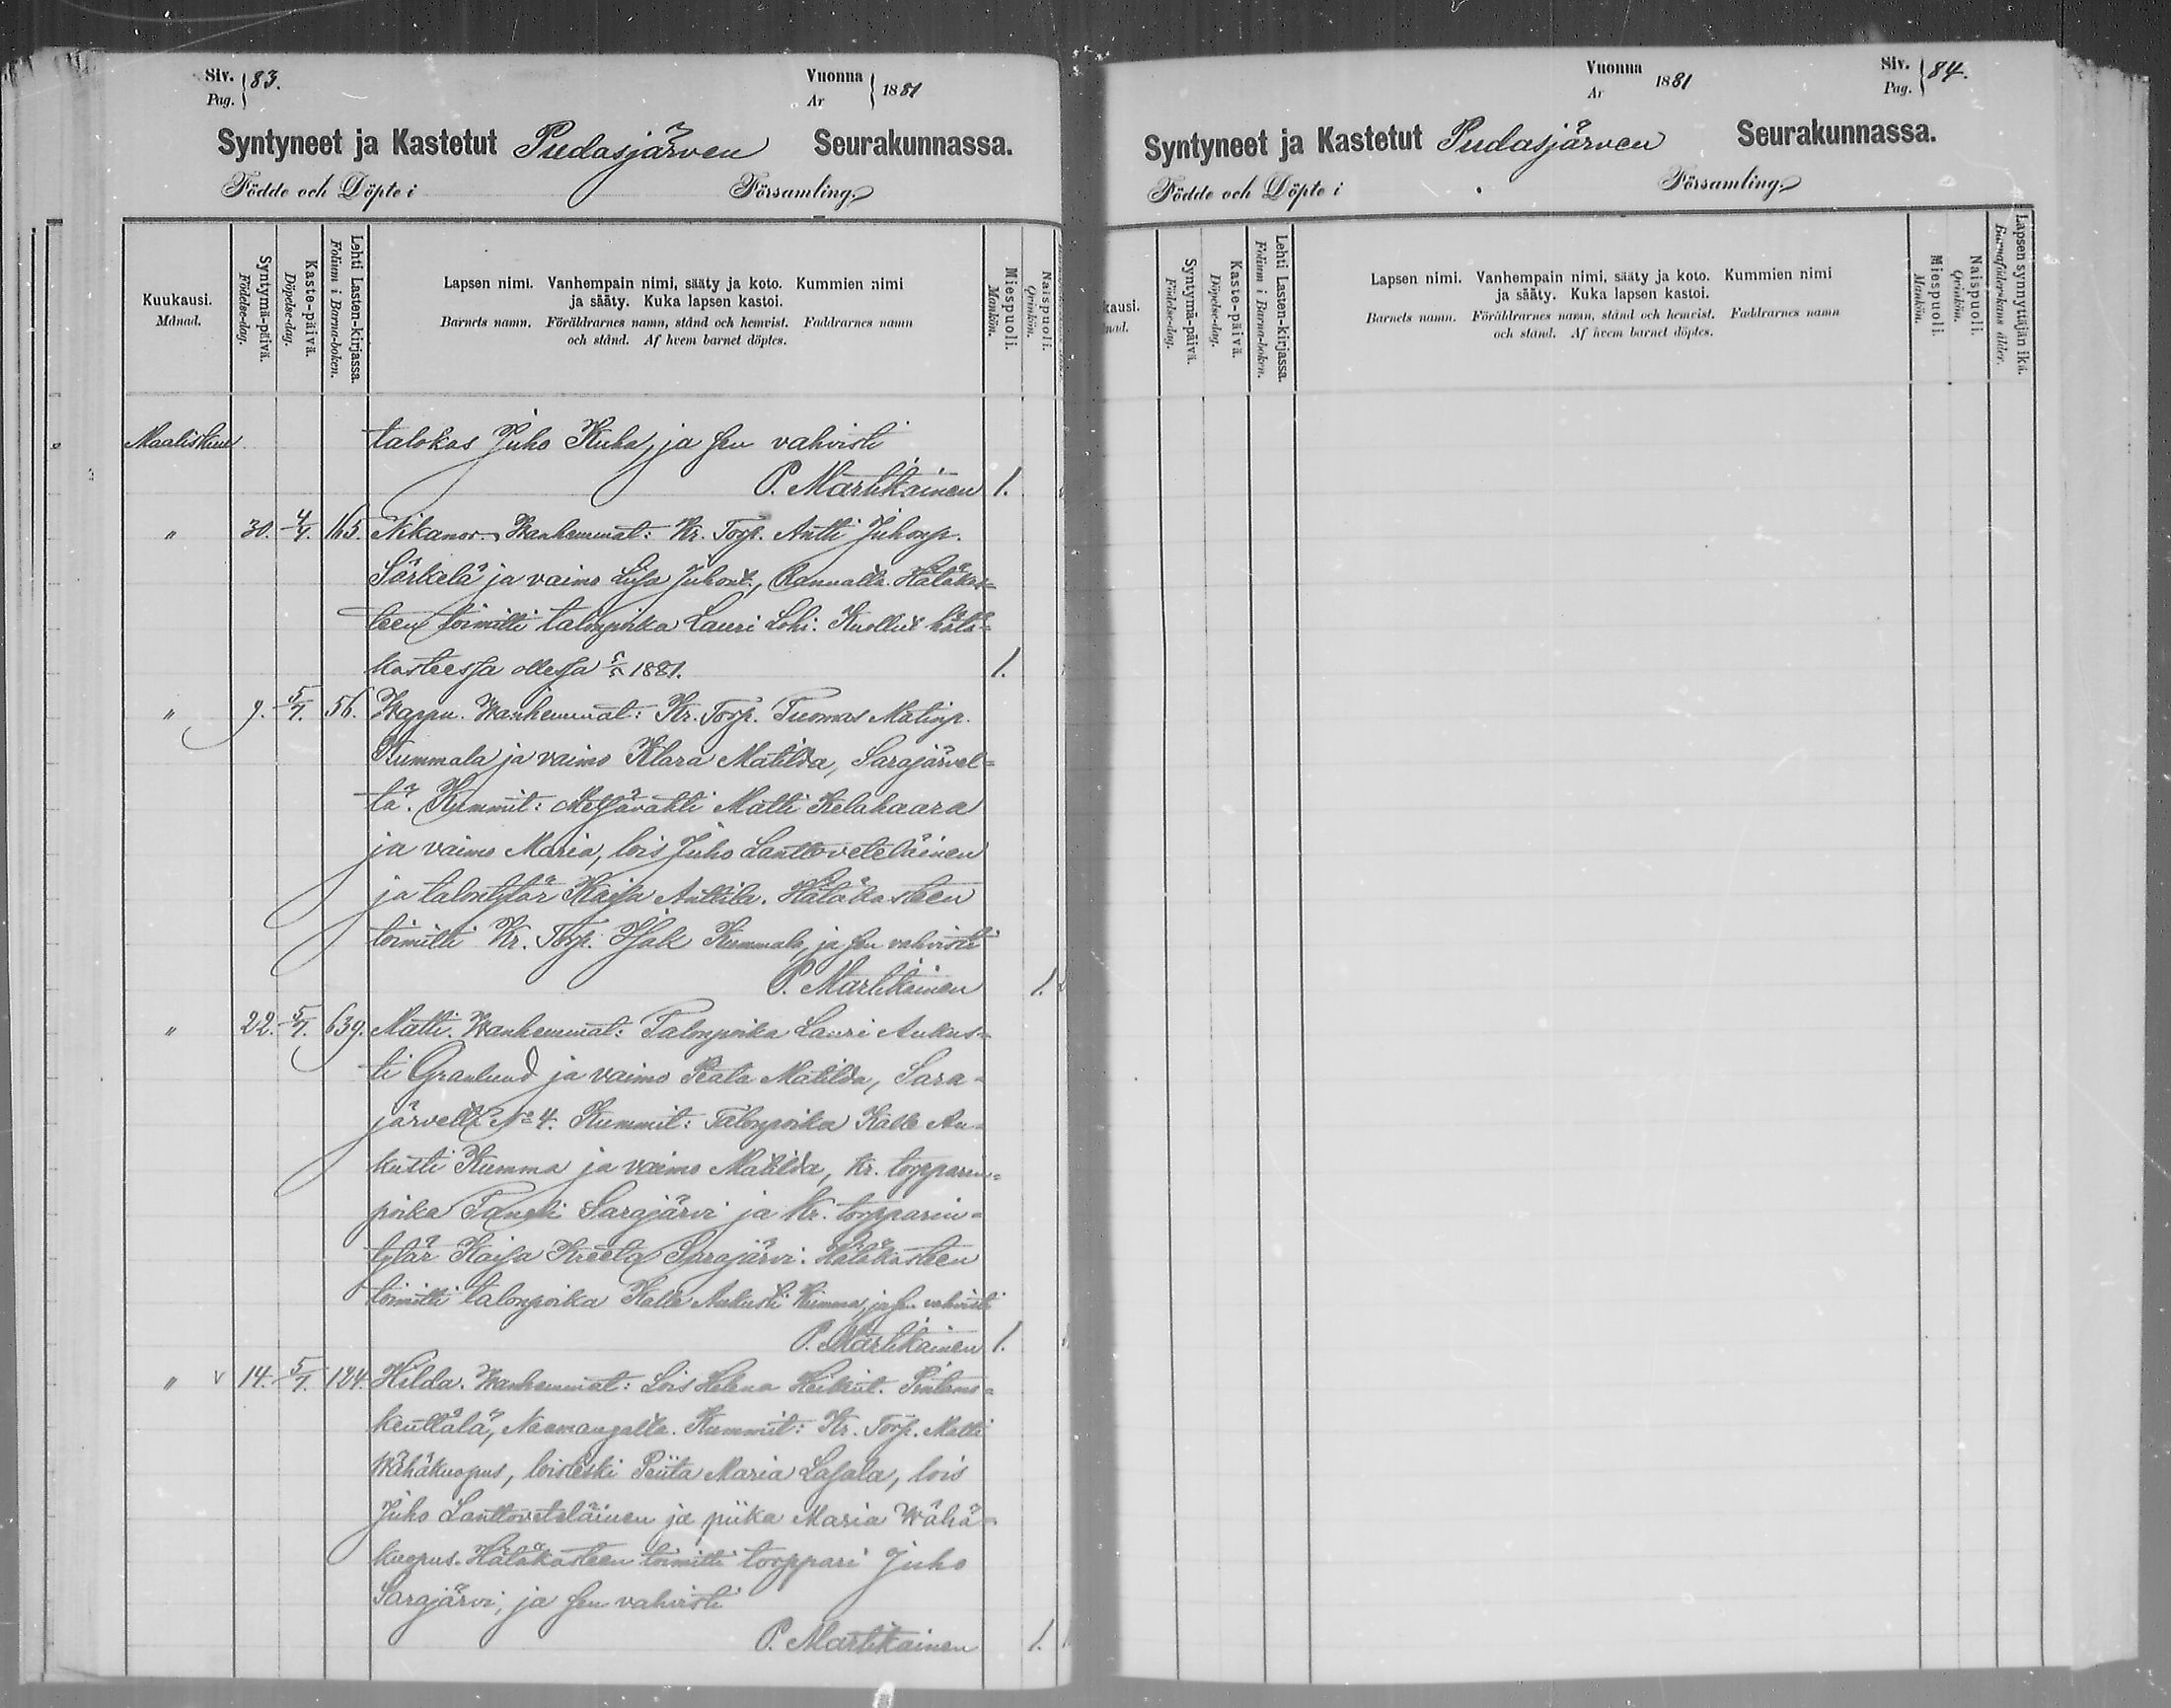 Siv. Pag. 83.
Vuonna Ar 1881
Syntyneet ja Kastetut Pudasjärven Seurakunnassa.
Födde och Döpte i Församling.
Kuukausi. Månad.
Syntymä-päivä. Födelse-dag.
Kaste-päivä. Döpelse-dag.
Lehti Lasten-kirjassa. Folium i Barna-boken.
Lapsen nimi. Vanhempain nimi, sääty ja koto. Kummien nimi
ja sääty. Kuka lapsen kastoi.
Barnets namn. Föräldrarnes namn, stånd och hemvist. Faddrarnes namn
och stånd. Af hvem barnet döptes.
Miespuoli. Mankön.
Naispuoli. Qvinkön.
Maaliskuu talokas Juho Kuha, ja sen vahvisti
P. Martikainen 1.
" 30. 4/4. 165. Nikanor. Wanhemmat: Kr. Torp. Antti Juhonp.
Särkelä ja vaimo Liisa Juhont., Ranualla. Hätäkas-
teen toimitti talonpoika Lauri Lohi. Kuollut hätä-
kasteessa ollessa 1881. 1.
" 9. 5/7. 56. Wappu. Wanhemmat: Kr. Torp. Tuomas Matinp.
Kummala ja vaimo Klara Matilda, Sarajärvel-
tä. Kummit: Metsävahti Matti Kelahaara
ja vaimo Maria, lois Juho Lanttoveteläinen
ja talontytär Kaisa Anttila. Hätäkasteen
toimitti Kr. Torp. Isak Kummala, ja sen vahvisti
P. Martikainen 1.
" 22. 5/7. 639. Matti. Wanhemmat: Talonpoika Lauri Aukus-
ti Granlund ja vaimo Reata Matilda, Sara-
järveltä No 4. Kummit: Talonpoika Kalle Au-
kusti Kumma ja vaimo Matilda, Kr. torpparin-
poika Taneli Sarajärvi ja Kr. torpparin-
tytär Kaisa Kreeta Sarajärvi. Hätäkasteen
toimitti talonpoika Kalle Aukusti Kumma, ja sen vahvisti
P. Martikainen 1.
" v 14. 5/7. 124. Hilda. Wanhemmat: Lois Helena Heikint. Pintamo-
kenttälä, Naamangalta. Kummit: Kr. Torp. Matti
Wähäkuopus, loisleski Priita Maria Lasala, lois
Juho Lanttoveteläinen ja piika Maria Wähä-
kuopus. Hätäkasteen toimitti torppari Juho
Sarajärvi, ja sen vahvisti
P. Martikainen 1.
Vuonna Ar 1881
Siv. Pag. 84.
Syntyneet ja Kastetut Pudasjärven Seurakunnassa.
Födde och Döpte i Församling.
kausi. nad.
Syntymä-päivä. Födelse-dag.
Kaste-päivä. Döpelse-dag.
Lehti Lasten-kirjassa. Folium i Barna-boken.
Lapsen nimi. Vanhempain nimi, sääty ja koto. Kummien nimi
ja sääty. Kuka lapsen kastoi.
Barnets namn. Föräldrarnes namn, stånd och hemvist. Faddrarnes namn
och stånd. Af hvem barnet döptes.
Miespuoli. Mankön.
Naispuoli. Qvinkön.
Lapsen synnyttäjän ikä. Barnaföderskans ålder.